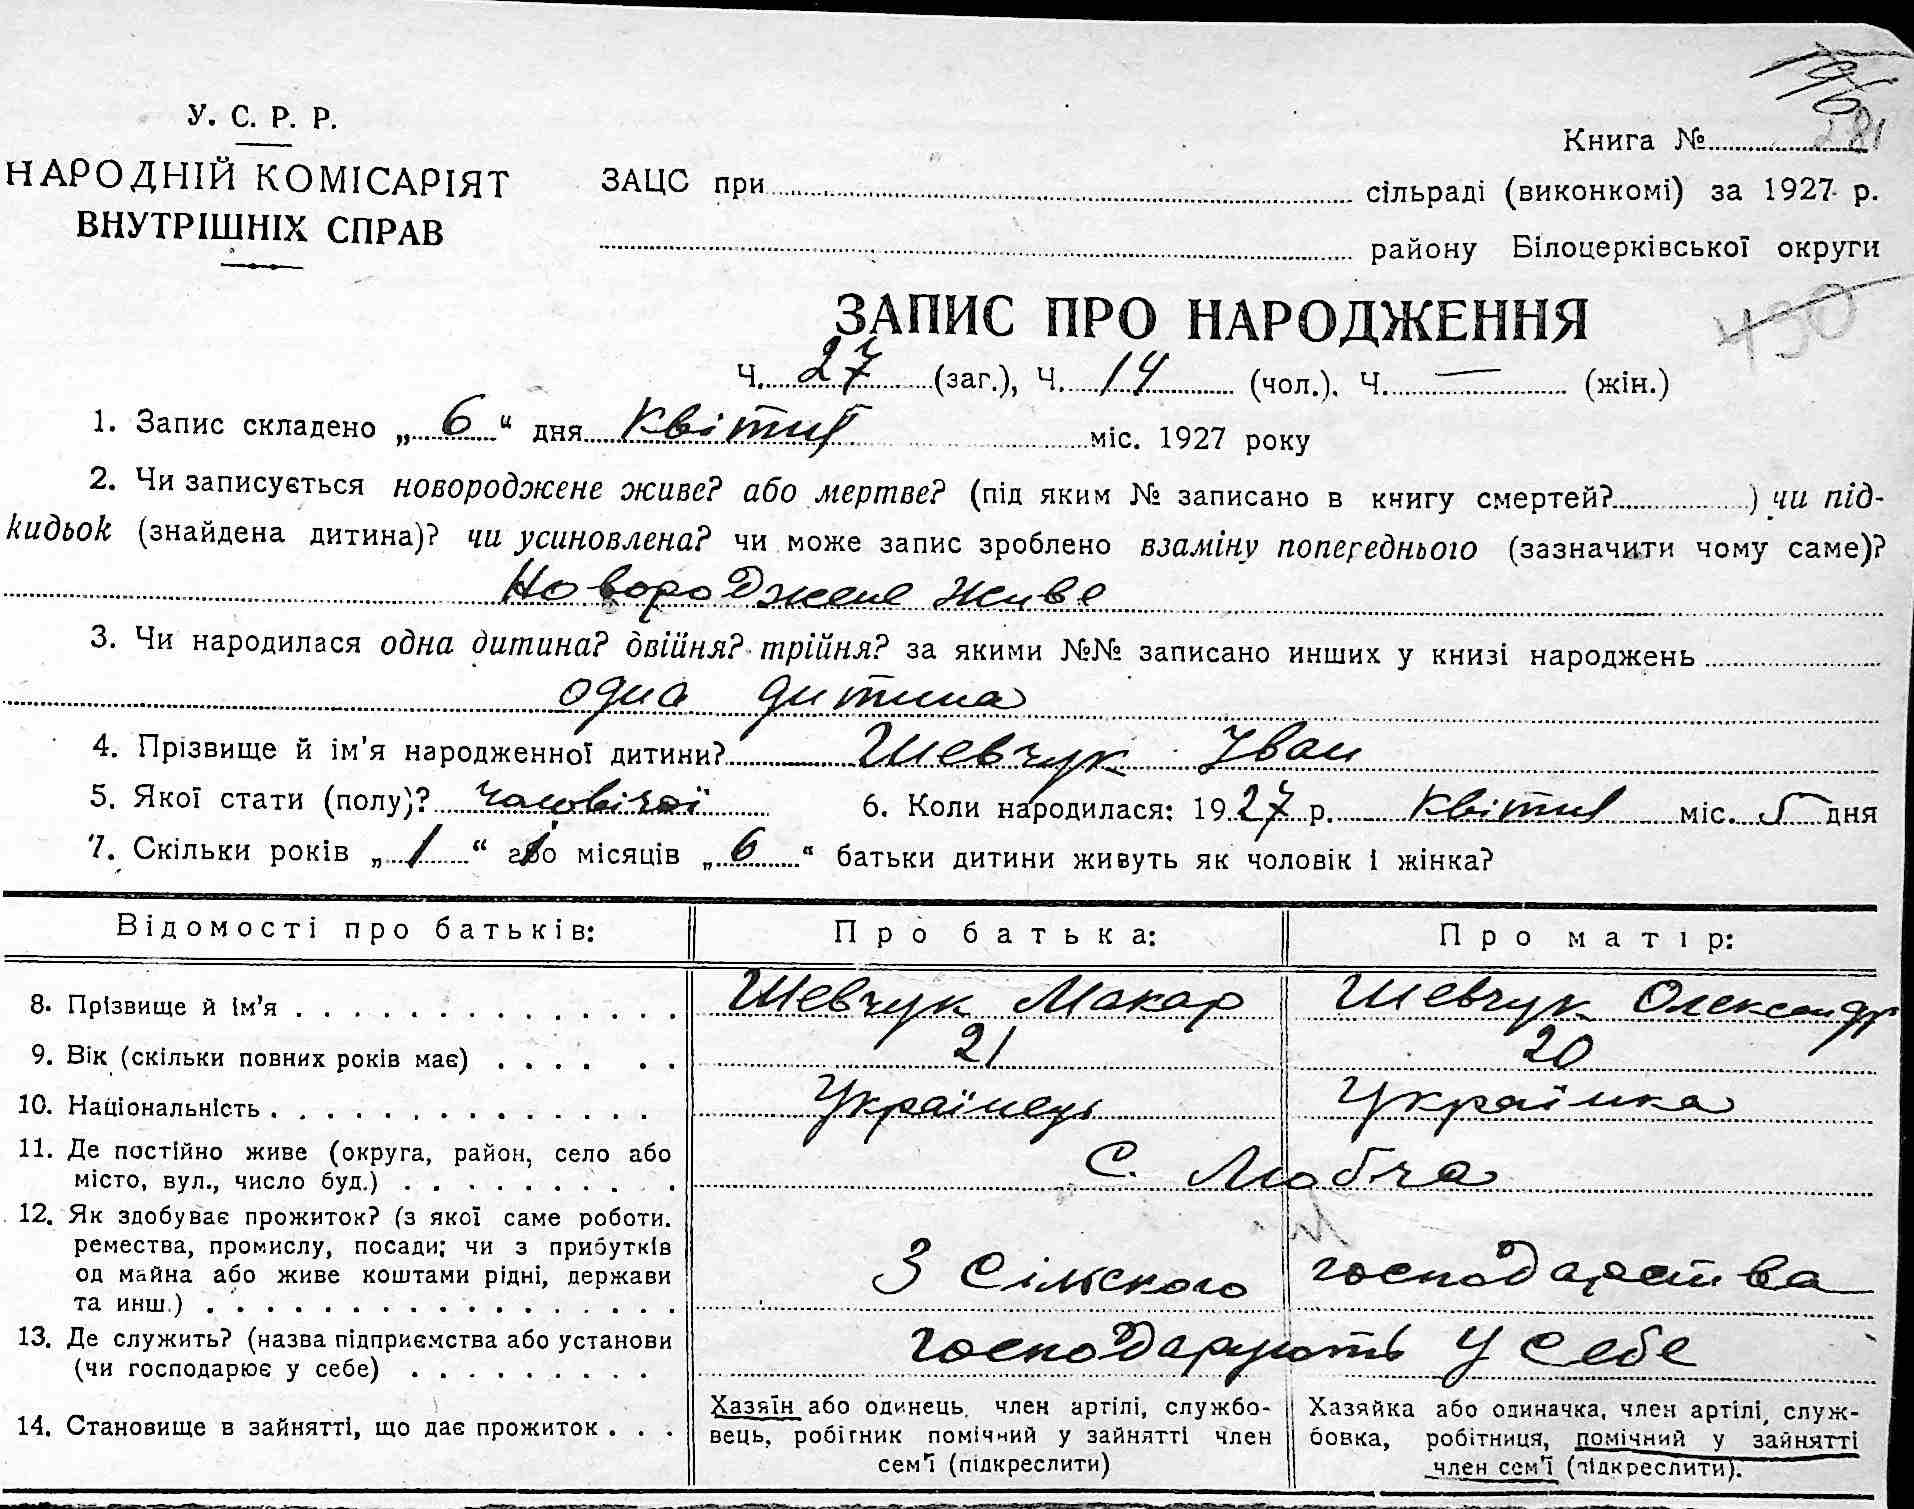 У. С. Р. Р.
НАРОДНІЙ КОМІСАРІЯТ
ВНУТРІШНІХ СПРАВ
Книга № 281
ЗАЦС при сільраді (виконкомі) за 1927 р.
району Білоцерківської округи
430
ЗАПИС ПРО НАРОДЖЕННЯ
Ч. 27 (заг.), Ч. 14 (чол.). Ч. — (жін.)
1. Запис складено „ 6 “ дня Квітня міс. 1927 року
2. Чи записується новороджене живе? або мертве? (під яким № записано в книгу смертей? ) чи під-
кидьок (знайдена дитина)? чи усиновлена? чи може запис зроблено взаміну попереднього (зазначити чому саме)?
Новороджене живе
3. Чи народилася одна дитина? двійня? трійня? за якими №№ записано инших у книзі народжень
одна дитина
4. Прізвище й ім'я народженної дитини? Шевчук Іван
5. Якої стати (полу)? чоловічої 6. Коли народилася: 1927 р. Квітня міс. 5 дня
7. Скільки років „ 1 “ або місяців „ 6 “ батьки дитини живуть як чоловік і жінка?
Відомості про батьків: Про батька: Про матір:
8. Прізвище й ім'я Шевчук Макар Шевчук Олександр
9. Вік (скільки повних років має) 21 20
10. Національність Українець Українка
11. Де постійно живе (округа, район, село або
місто, вул., число буд.) С. Любча
12. Як здобуває прожиток? (з якої саме роботи.
ремества, промислу, посади; чи з прибутків
од майна або живе коштами рідні, держави
та инш.) З сільского господарства
13. Де служить? (назва підприємства або установи
(чи господарює у себе) господарують у себе
14. Становище в зайнятті, що дає прожиток
Хазяїн або одинець, член артілі, службо-
вець, робітник помічний у зайнятті член
сем'ї (підкреслити)
Хазяйка або одиначка, член артілі, служ-
бовка, робітниця, помічний у зайнятті
член сем'ї (підкреслити).